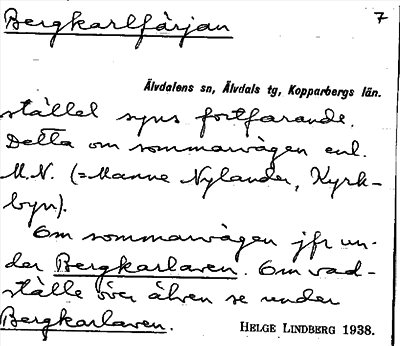 Bergkarlfärjan 7
Älvdalens sn, Älvdals tg, Kopparbergs län.
stället syns fortfarande.
Detta om sommarvägen enl.
M.N. (=Manne Nylander, Kyrk-
byn).
Om sommarvägen jfr un-
der Bergkarlaven. Om vad-
ställe över älven se under
Bergkarlaven. HELGE LINDBERG 1938.